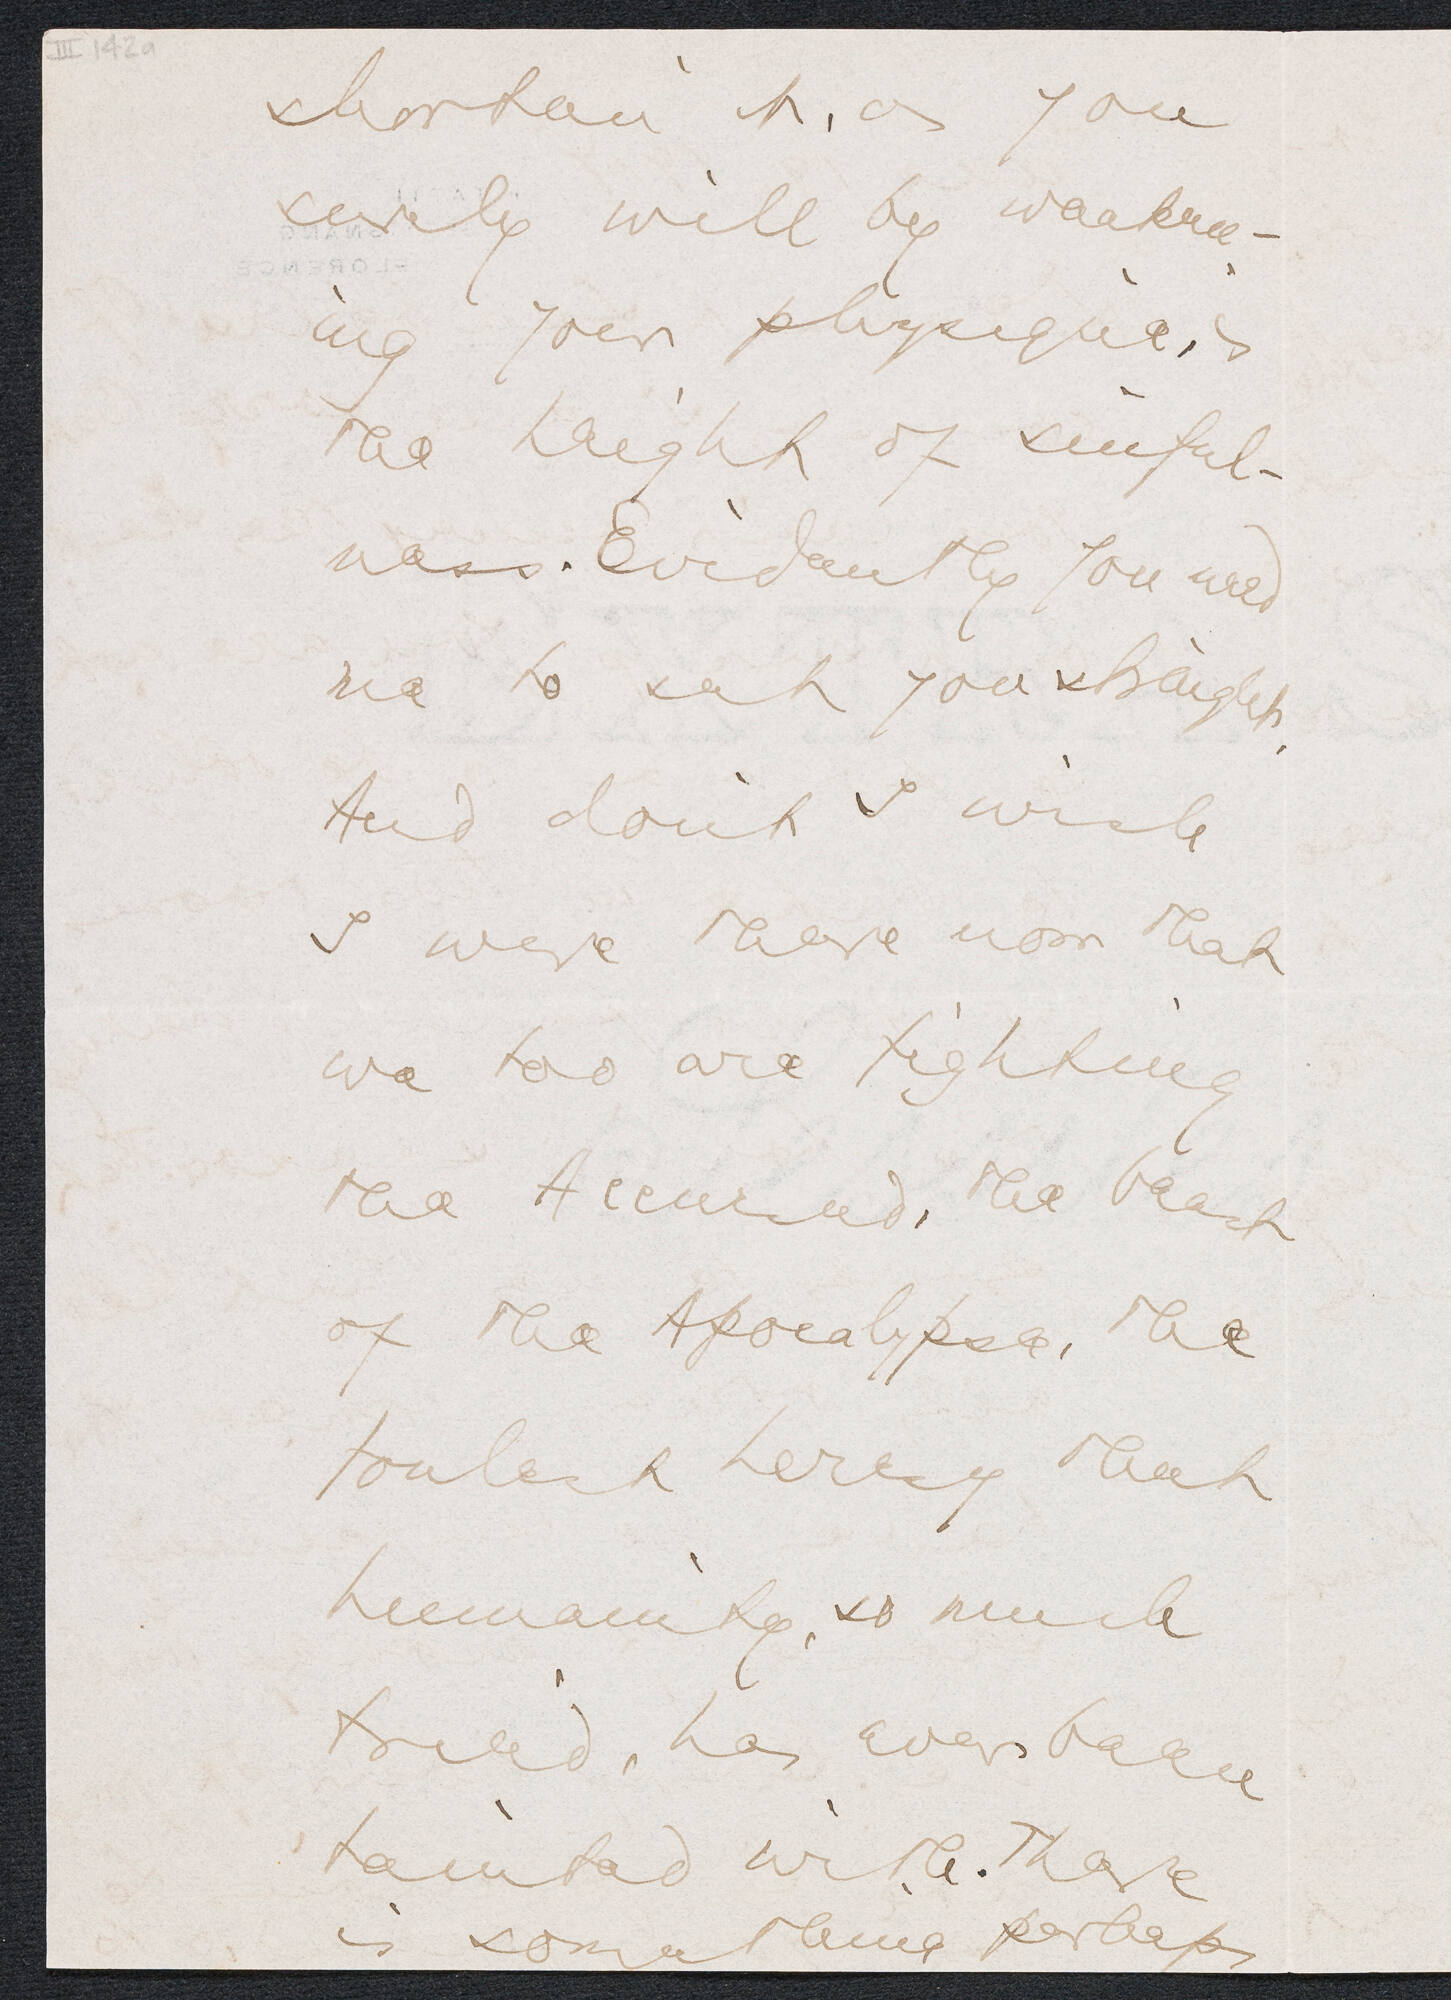 III 142a
shorten it, as you
surely will by weaken-
ing your physique, is
the height of sinful-
ness. Evidently you need
me to set you straight.
And don't I wish
I were there now that
we too are fighting
the Accursed, the beast
of the Apocalypse, the
foulest heresy that
humanity, so much
tried, has ever been
tainted with. There
is something perhaps